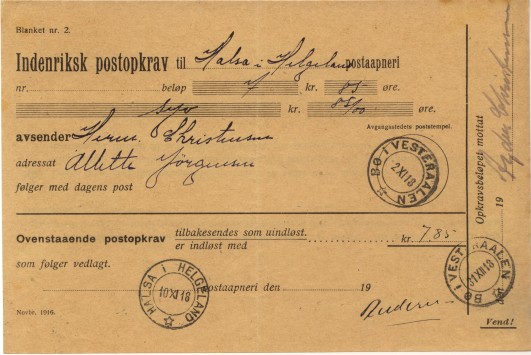 Blanket nr. 2.
Indenriksk postopkrav til Halsa i Helgeland postaapneri
nr. beløp 7 kr. 85 øre.
syv kr. 85/00 øre.
avsender Herm. Christensen
Avgangsstedets poststempel.
adressat Allette Jörgensen
følger med dagens post
BØ I VESTERAALEN
2 XI 18
Ovenstaaende postopkrav tilbakesendes som uindløst.
er indløst med kr. 7.85
som følger vedlagt.
postaapneri den 19
HALSA I HELGELAND
10 XI 18
Norbr. 1916.
Opkravsbeløpet mottat
den 19
BØ I VESTERAALEN
31 XII 18
Vend!